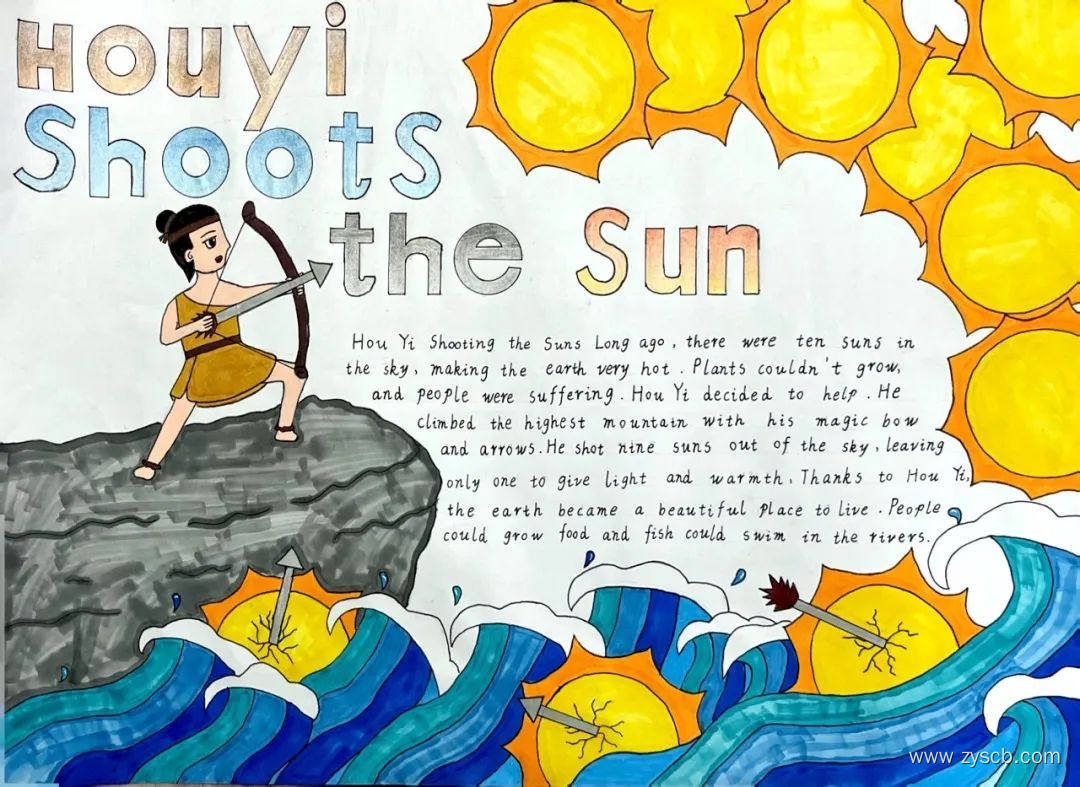 Houyi
Shoots
the Sun
Hou Yi Shooting the Suns Long ago, there were ten suns in
the sky, making the earth very hot. Plants couldn't grow,
and people were suffering. Hou Yi decided to help. He
climbed the highest mountain with his magic bow
and arrows. He shot nine suns out of the sky, leaving
only one to give light and warmth. Thanks to Hou Yi,
the earth became a beautiful place to live. People
could grow food and fish could swim in the rivers.
www.zyscb.com